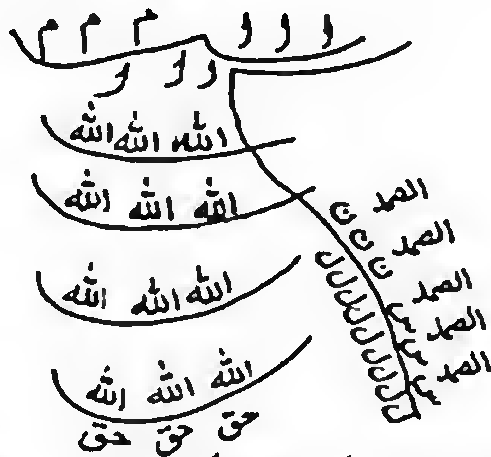 و و و م م م
و و و
الله الله الله
الله الله الله
الله الله الله
الله الله الله
حق حق حق
الصمد
الصمد
الصمد
الصمد
الصمد
ن ن ن
س س س
ل ل ل ل ل ل ل ل